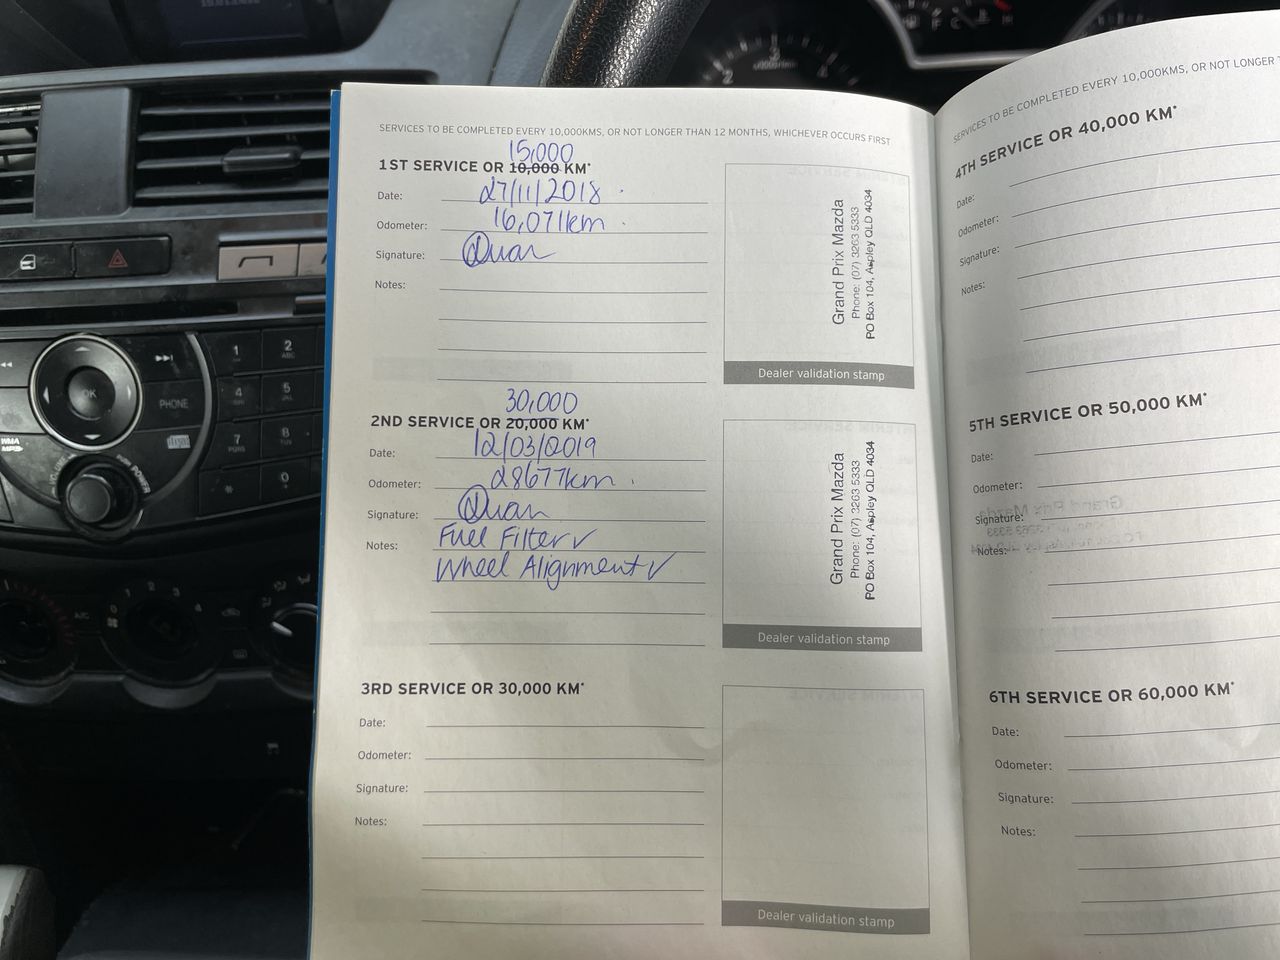 SERVICES TO BE COMPLETED EVERY 10,000KMS, OR NOT LONGER THAN 12 MONTHS, WHICHEVER OCCURS FIRST
15,000
1ST SERVICE OR 10,000 KM*
Date: 27/11/2018
Odometer: 16,071km
Signature: Quan
Notes:
Grand Prix Mazda
Phone: (07) 3263 5333
PO Box 104, Aspley QLD 4034
Dealer validation stamp
30,000
2ND SERVICE OR 20,000 KM*
Date: 12/03/2019
Odometer: 28677km
Signature: Quan
Notes: Fuel Filter ✓
Wheel Alignment ✓
Grand Prix Mazda
Phone: (07) 3263 5333
PO Box 104, Aspley QLD 4034
Dealer validation stamp
3RD SERVICE OR 30,000 KM*
Date:
Odometer:
Signature:
Notes:
Dealer validation stamp
SERVICES TO BE COMPLETED EVERY 10,000KMS, OR NOT LONGER
4TH SERVICE OR 40,000 KM*
Date:
Odometer:
Signature:
Notes:
5TH SERVICE OR 50,000 KM*
Date:
Odometer:
Signature:
Notes:
6TH SERVICE OR 60,000 KM*
Date:
Odometer:
Signature:
Notes:
1
2 ABC
OK
PHONE
4
5
7 PQRS
8
*
0
POWER
A/C
0 1 2 3 4
2 3 4
F C H